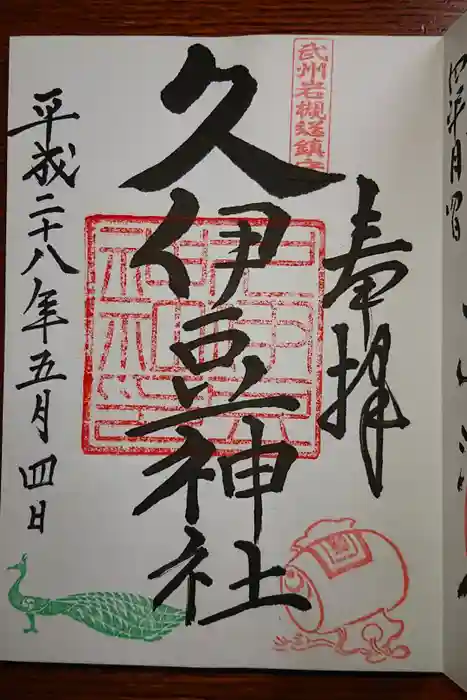 武州岩槻総鎮守
奉拝
久伊豆神社
平成二十八年五月四日